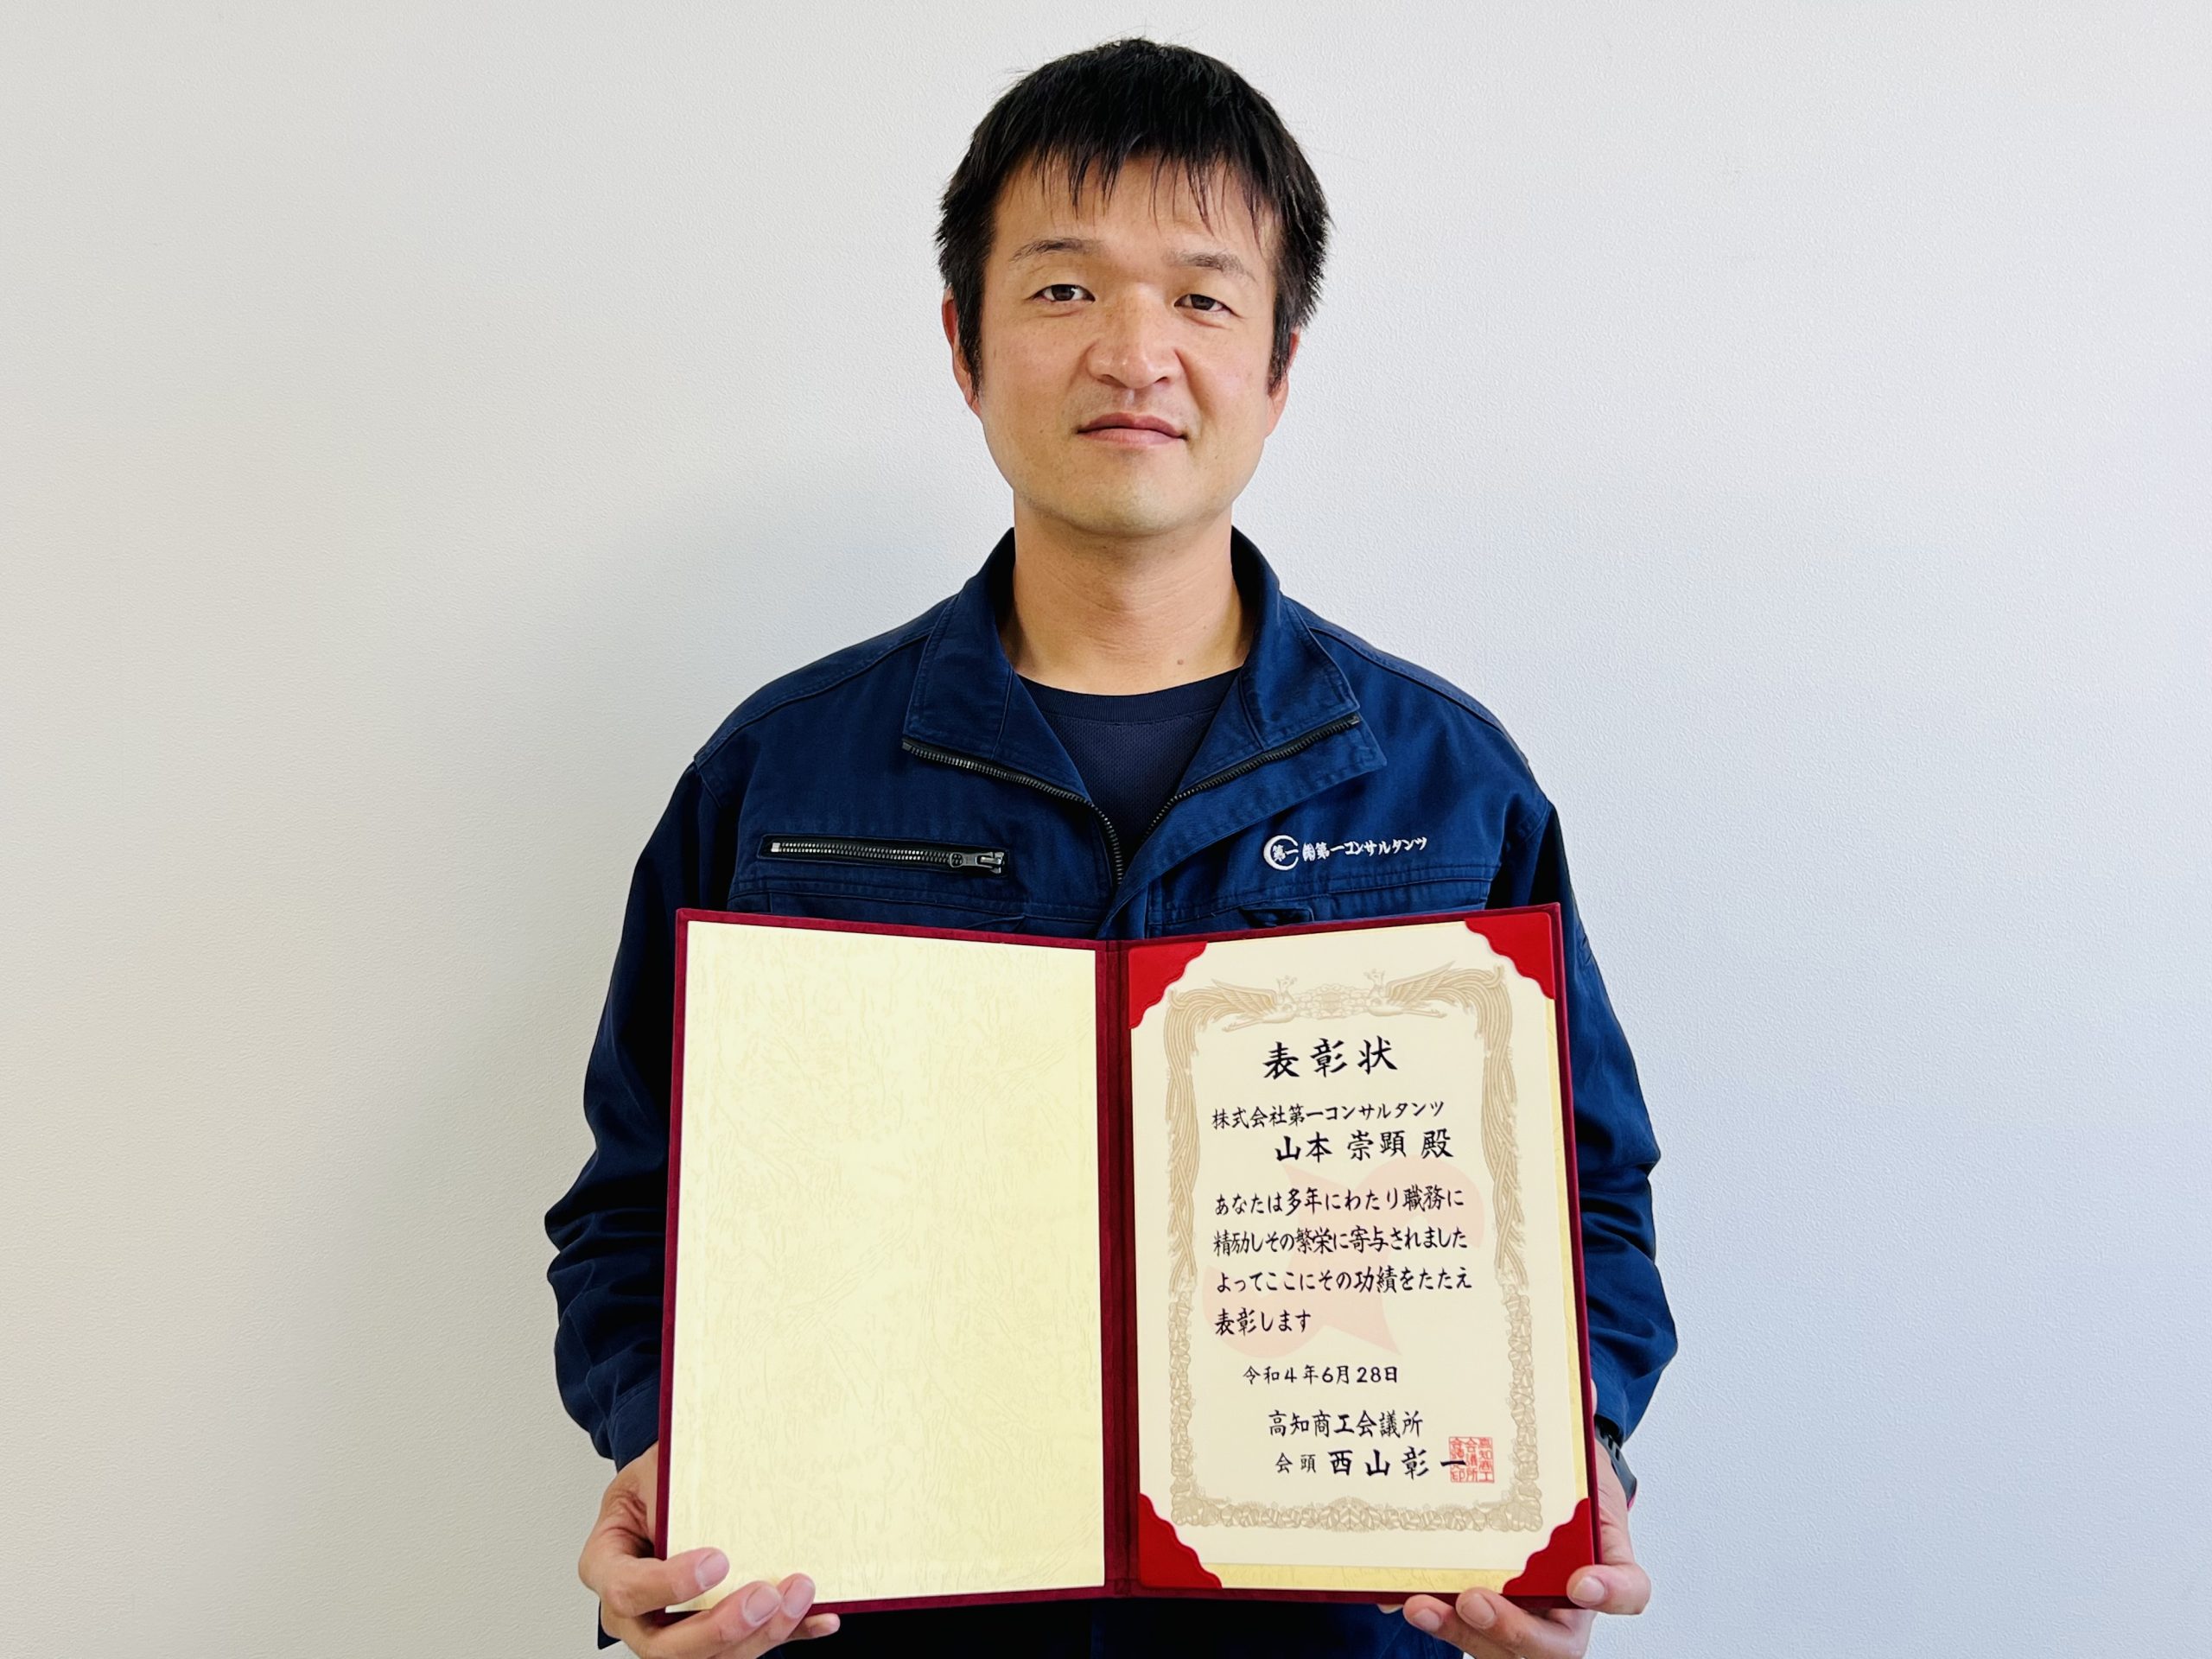 第一 ㈱第一コンサルタンツ
表彰状
株式会社第一コンサルタンツ
山本 崇顕 殿
あなたは多年にわたり職務に
精励しその繁栄に寄与されました
よってここにその功績をたたえ
表彰します
令和4年6月28日
高知商工会議所
会頭 西山彰一